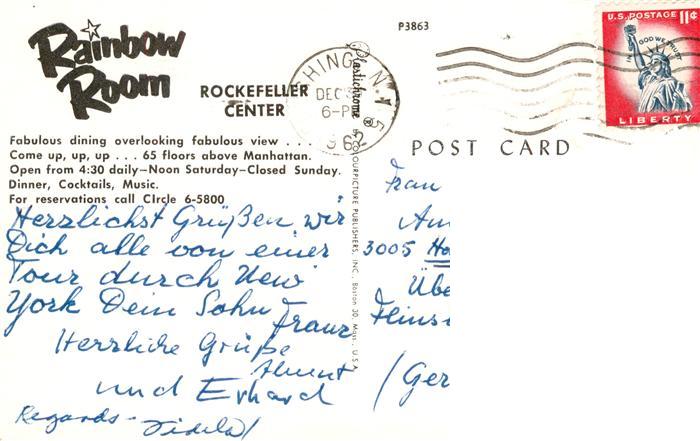 Rainbow
Room
ROCKEFELLER
CENTER
P3863
Fabulous dining overlooking fabulous view . . .
Come up, up, up . . . 65 floors above Manhattan.
Open from 4:30 daily—Noon Saturday—Closed Sunday.
Dinner, Cocktails, Music.
For reservations call CIrcle 6-5800
Herzlichst Grüßen wir
Dich alle von einer
Tour durch New
York Dein Sohn Franz
Herzliche Grüße
und Erhard
Regards-
Plastichrome ®
COLOURPICTURE PUBLISHERS, INC., Boston 30, Mass., U.S.A.
HING N.Y.
DEC
6-P
U.S. POSTAGE 11¢
IN GOD WE TRUST
LIBERTY
POST CARD
Frau
Am
3005 He
Übe
(Ger